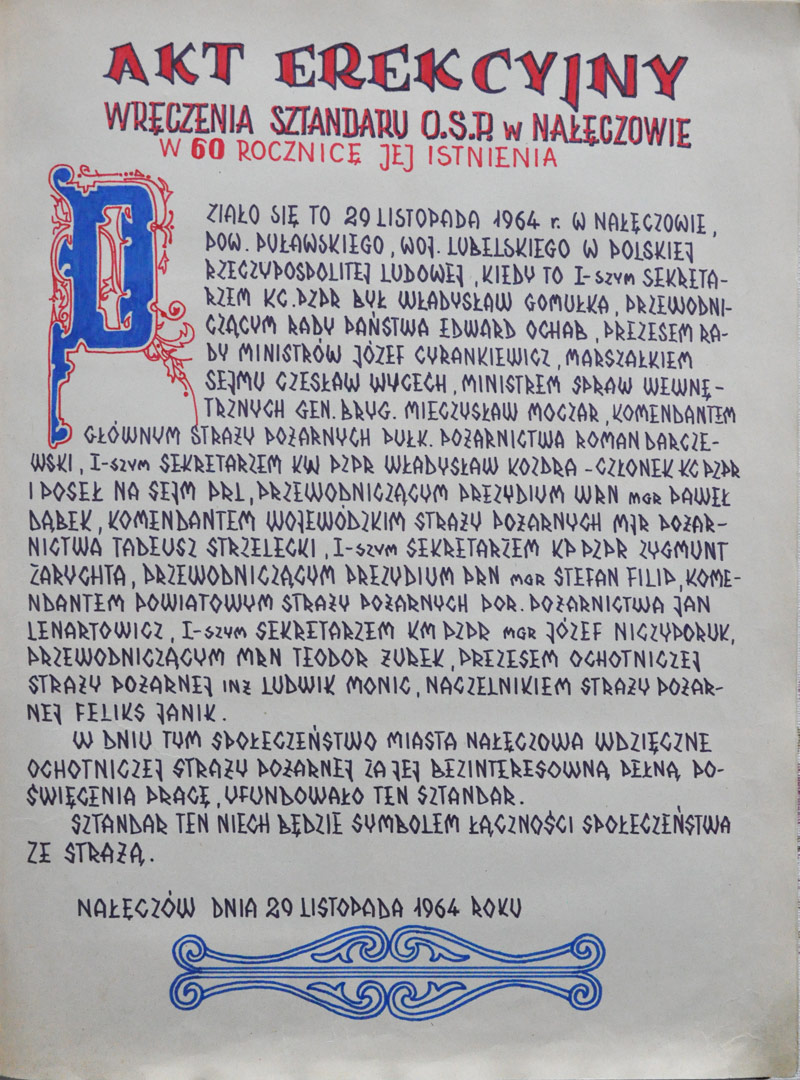 AKT EREKCYJNY
WRĘCZENIA SZTANDARU O.S.P. w NAŁĘCZOWIE
W 60 ROCZNICĘ JEJ ISTNIENIA
DZIAŁO SIĘ TO 29 LISTOPADA 1964 r. W NAŁĘCZOWIE,
POW. PUŁAWSKIEGO, WOJ. LUBELSKIEGO W POLSKIEJ
RZECZYPOSPOLITEJ LUDOWEJ, KIEDY TO I-szym SEKRETA-
RZEM KC. PZPR BYŁ WŁADYSŁAW GOMUŁKA, PRZEWODNI-
CZĄCYM RADY PAŃSTWA EDWARD OCHAB, PREZESEM RA-
DY MINISTRÓW JÓZEF CYRANKIEWICZ, MARSZAŁKIEM
SEJMU CZESŁAW WYCECH, MINISTREM SPRAW WEWNĘ-
TRZNYCH GEN. BRYG. MIECZYSŁAW MOCZAR, KOMENDANTEM
GŁÓWNYM STRAŻY POŻARNYCH PUŁK. POŻARNICTWA ROMAN DARCZE-
WSKI, I-szym SEKRETARZEM KW PZPR WŁADYSŁAW KOZDRA - CZŁONEK KC PZPR
I POSEŁ NA SEJM PRL, PRZEWODNICZĄCYM PREZYDIUM WRN mgr PAWEŁ
DĄBEK, KOMENDANTEM WOJEWÓDZKIM STRAŻY POŻARNYCH MJR POŻAR-
NICTWA TADEUSZ STRZELECKI, I-szym SEKRETARZEM KP PZPR ZYGMUNT
ZARYCHTA, PRZEWODNICZĄCYM PREZYDIUM PRN mgr STEFAN FILIP, KOME-
NDANTEM POWIATOWYM STRAŻY POŻARNYCH POR. POŻARNICTWA JAN
LENARTOWICZ, I-szym SEKRETARZEM KM PZPR mgr JÓZEF NICZYPORUK,
PRZEWODNICZĄCYM MRN TEODOR ŻUREK, PREZESEM OCHOTNICZEJ
STRAŻY POŻARNEJ inż LUDWIK MONIC, NACZELNIKIEM STRAŻY POŻAR-
NEJ FELIKS JANIK.
W DNIU TYM SPOŁECZEŃSTWO MIASTA NAŁĘCZOWA WDZIĘCZNE
OCHOTNICZEJ STRAŻY POŻARNEJ ZA JEJ BEZINTERESOWNĄ, PEŁNĄ PO-
ŚWIĘCENIA PRACĘ, UFUNDOWAŁO TEN SZTANDAR.
SZTANDAR TEN NIECH BĘDZIE SYMBOLEM ŁĄCZNOŚCI SPOŁECZEŃSTWA
ZE STRAŻĄ.
NAŁĘCZÓW DNIA 29 LISTOPADA 1964 ROKU